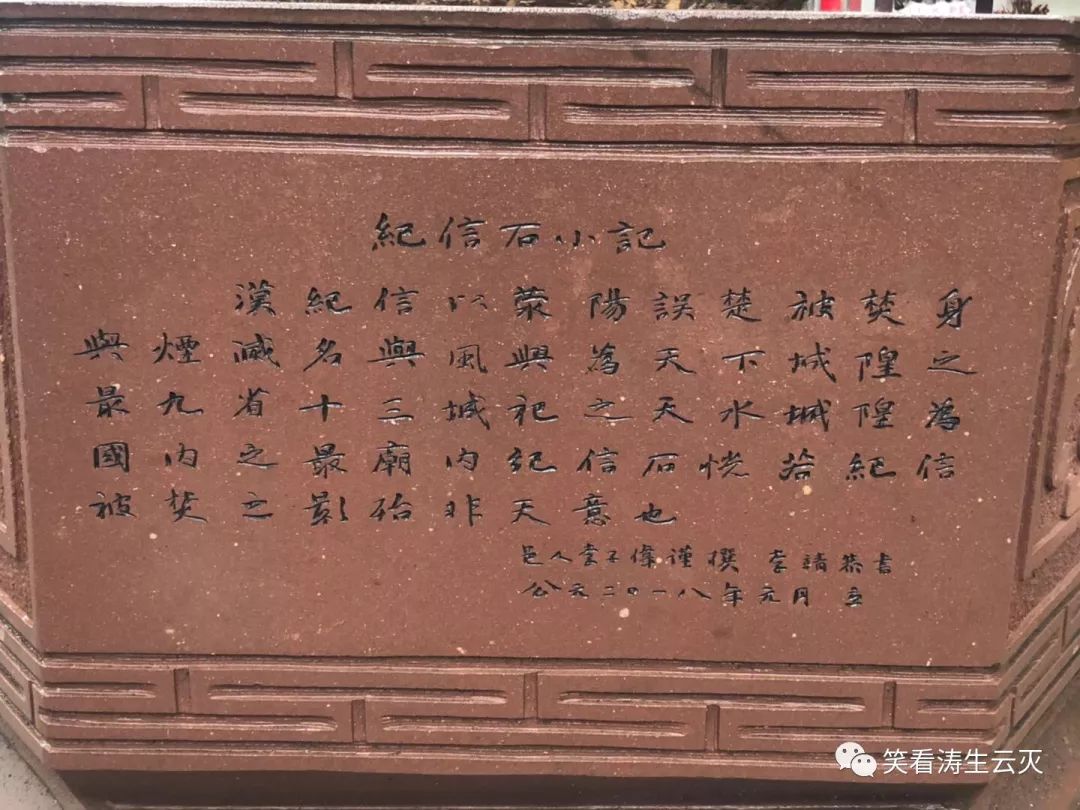 紀信石小記
漢紀信以滎陽誤楚被焚身
與煙滅名與風興為天下城隍之
最九省十三城祀之天水城隍為
國內之最廟內紀信石恍若紀信
被焚之影殆非天意也
邑人李子偉謹撰 李靖
書
公元二〇一八年元月 立
笑看涛生云灭